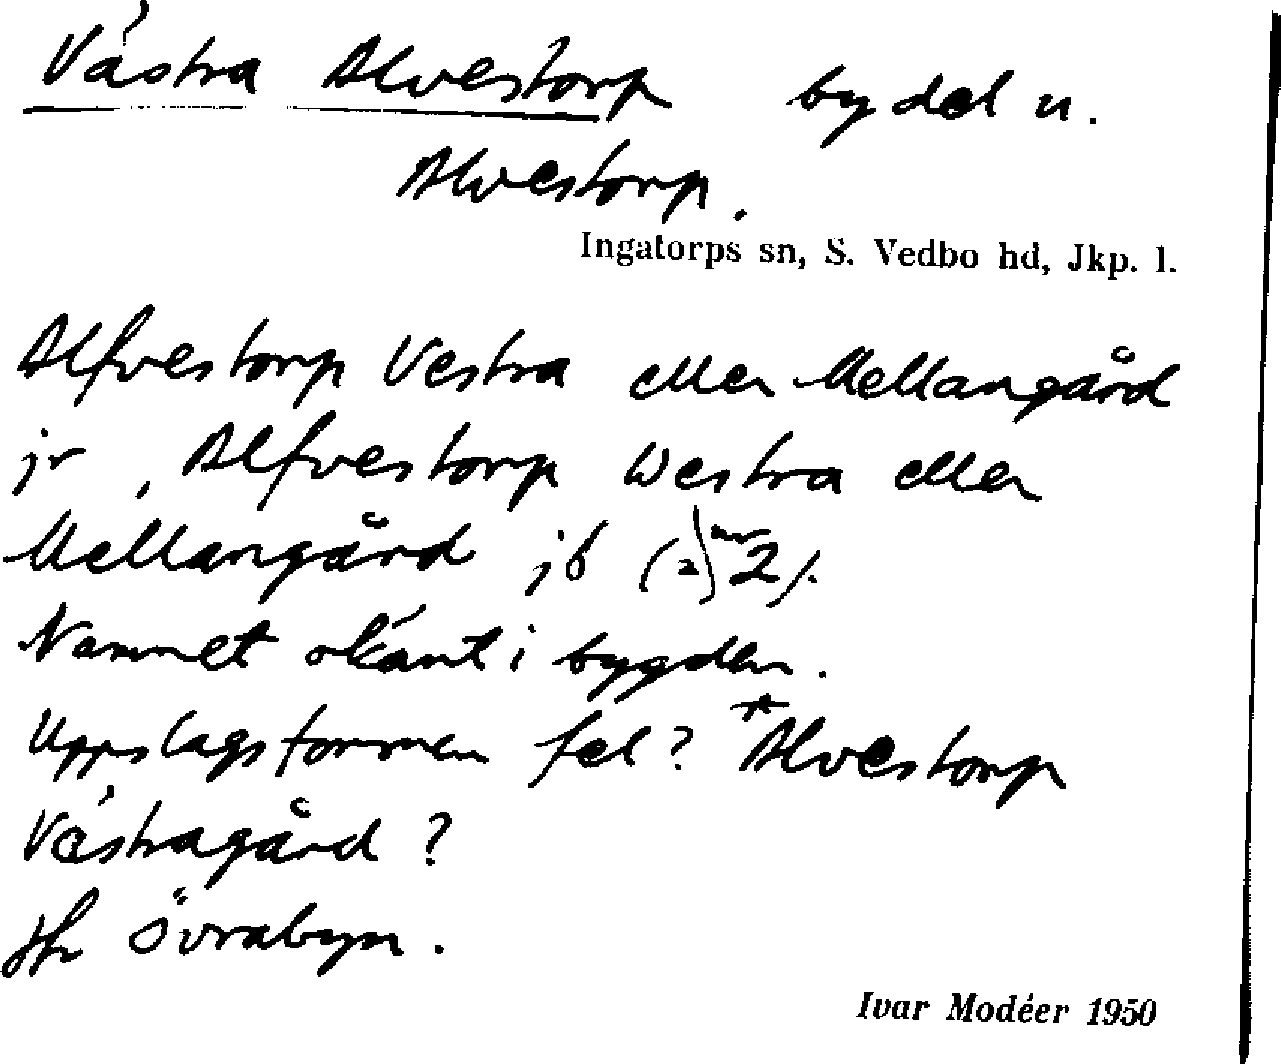 Västra Alvestorp bydel u.
Alvestorp.
Ingatorps sn, S. Vedbo hd, Jkp. l.
Alfvestorp Vestra eller Mellangård
jr, Alfvestorp Westra eller
Mellangård jb (2) nr 2/.
Namnet okänt i bygden.
Uppslagsformen fel? *Alvestorp
Västragård?
Jfr Övrabyn.
Ivar Modéer 1950